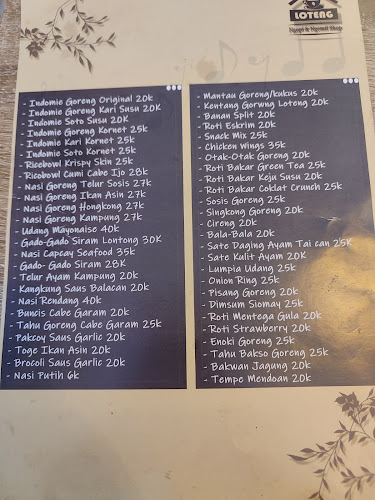 LOTENG
Ngopi & Ngemil Shop
- Indomie Goreng Original 20k
- Indomie Goreng Kari Susu 20k
- Indomie Soto Susu 20k
- Indomie Goreng Kornet 25k
- Indomie Kari Kornet 25k
- Indomie Soto Kornet 25k
- Ricebowl Krispy Skin 25k
- Ricebowl Cumi Cabe Ijo 28k
- Nasi Goreng Telur Sosis 27k
- Nasi Goreng Ikan Asin 27k
- Nasi Goreng Hongkong 27k
- Nasi Goreng Kampung 27k
- Udang Mayonaise 40k
- Gado-Gado Siram Lontong 30K
- Nasi Capcay Seafood 35k
- Gado- Gado Siram 28K
- Telur Ayam Kampung 20k
- Kangkung Saus Balacan 20k
- Nasi Rendang 40k
- Buncis Cabe Garam 20k
- Tahu Goreng Cabe Garam 25k
- Pakcoy Saus Garlic 20k
- Toge Ikan Asin 20k
- Brocoli Saus Garlic 20k
- Nasi Putih 6k
- Mantau Goreng/kukus 20k
- Kentang Gorwng Loteng 20k
- Banan Split 20k
- Roti Eskrim 20k
- Snack Mix 25k
- Chicken Wings 35k
- Otak-Otak Goreng 20k
- Roti Bakar Green Tea 25k
- Roti Bakar Keju Susu 20k
- Roti Bakar Coklat Crunch 25k
- Sosis Goreng 25k
- Singkong Goreng 20k
- Cireng 20k
- Bala-Bala 20k
- Sate Daging Ayam Tai can 25k
- Sate Kulit Ayam 20K
- Lumpia Udang 25k
- Onion Ring 25k
- Pisang Goreng 20k
- Dimsum Siomay 25k
- Roti Mentega Gula 20k
- Roti Strawberry 20k
- Enoki Goreng 25k
- Tahu Bakso Goreng 25k
- Bakwan Jagung 20k
- Tempe Mendoan 20k